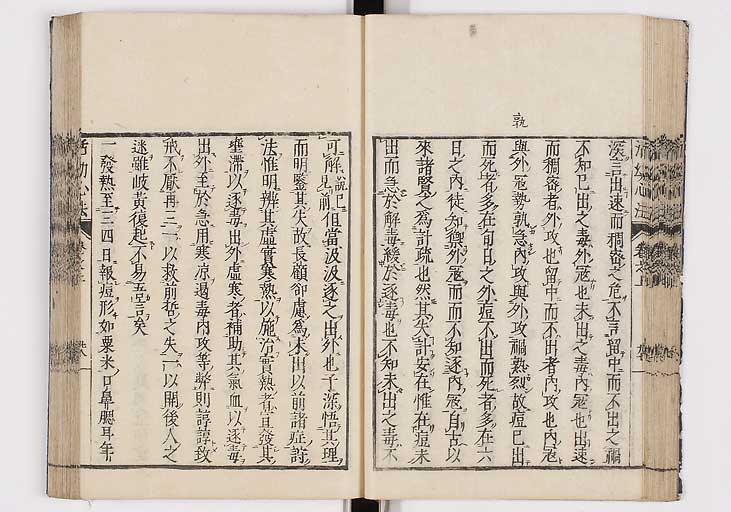 孰
深言出速而稠密之危不言留中而不出之禍
不知已出之毒外冦也未出之毒內冦也出速
而稠密者外攻也留中而不出者內攻也內冦
與外冦孰急內攻與外攻禍熟烈故痘已出
而死者多在旬日之外痘不出而死者多在六
日之內徒知禦外冦而不知逐內冦自古以
來諸賢之為計疏也然其失計安在惟在痘未
出而急於解毒緩於逐毒也不知未出之毒不
可解說見前已但當汲汲逐之出外也予深悟其理
而明鑒其失故長顧卻慮為未出以前諸症
法惟明辨其虛實寒熱以施治實熱者發其
壅滯以逐毒出外虛寒者補助其氣血以逐毒
出外至於急用寒涼遏毒內攻等弊則諄諄致
戒不厭再三一以救前哲之失一以開後人之
迷雖岐黃復起不易吾言矣
一發熱至三四日報痘形如粟米口鼻腮耳年